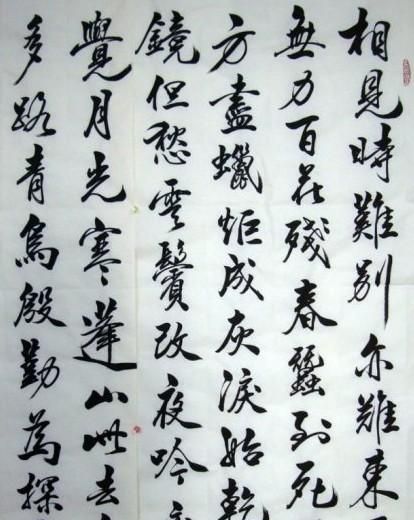 相見時難别亦難東
無力百花殘春蠶到死
方盡蠟炬成灰淚始乾
鏡但愁雲鬢改夜吟
覺月光寒蓬山此去
多路青鳥殷勤為探